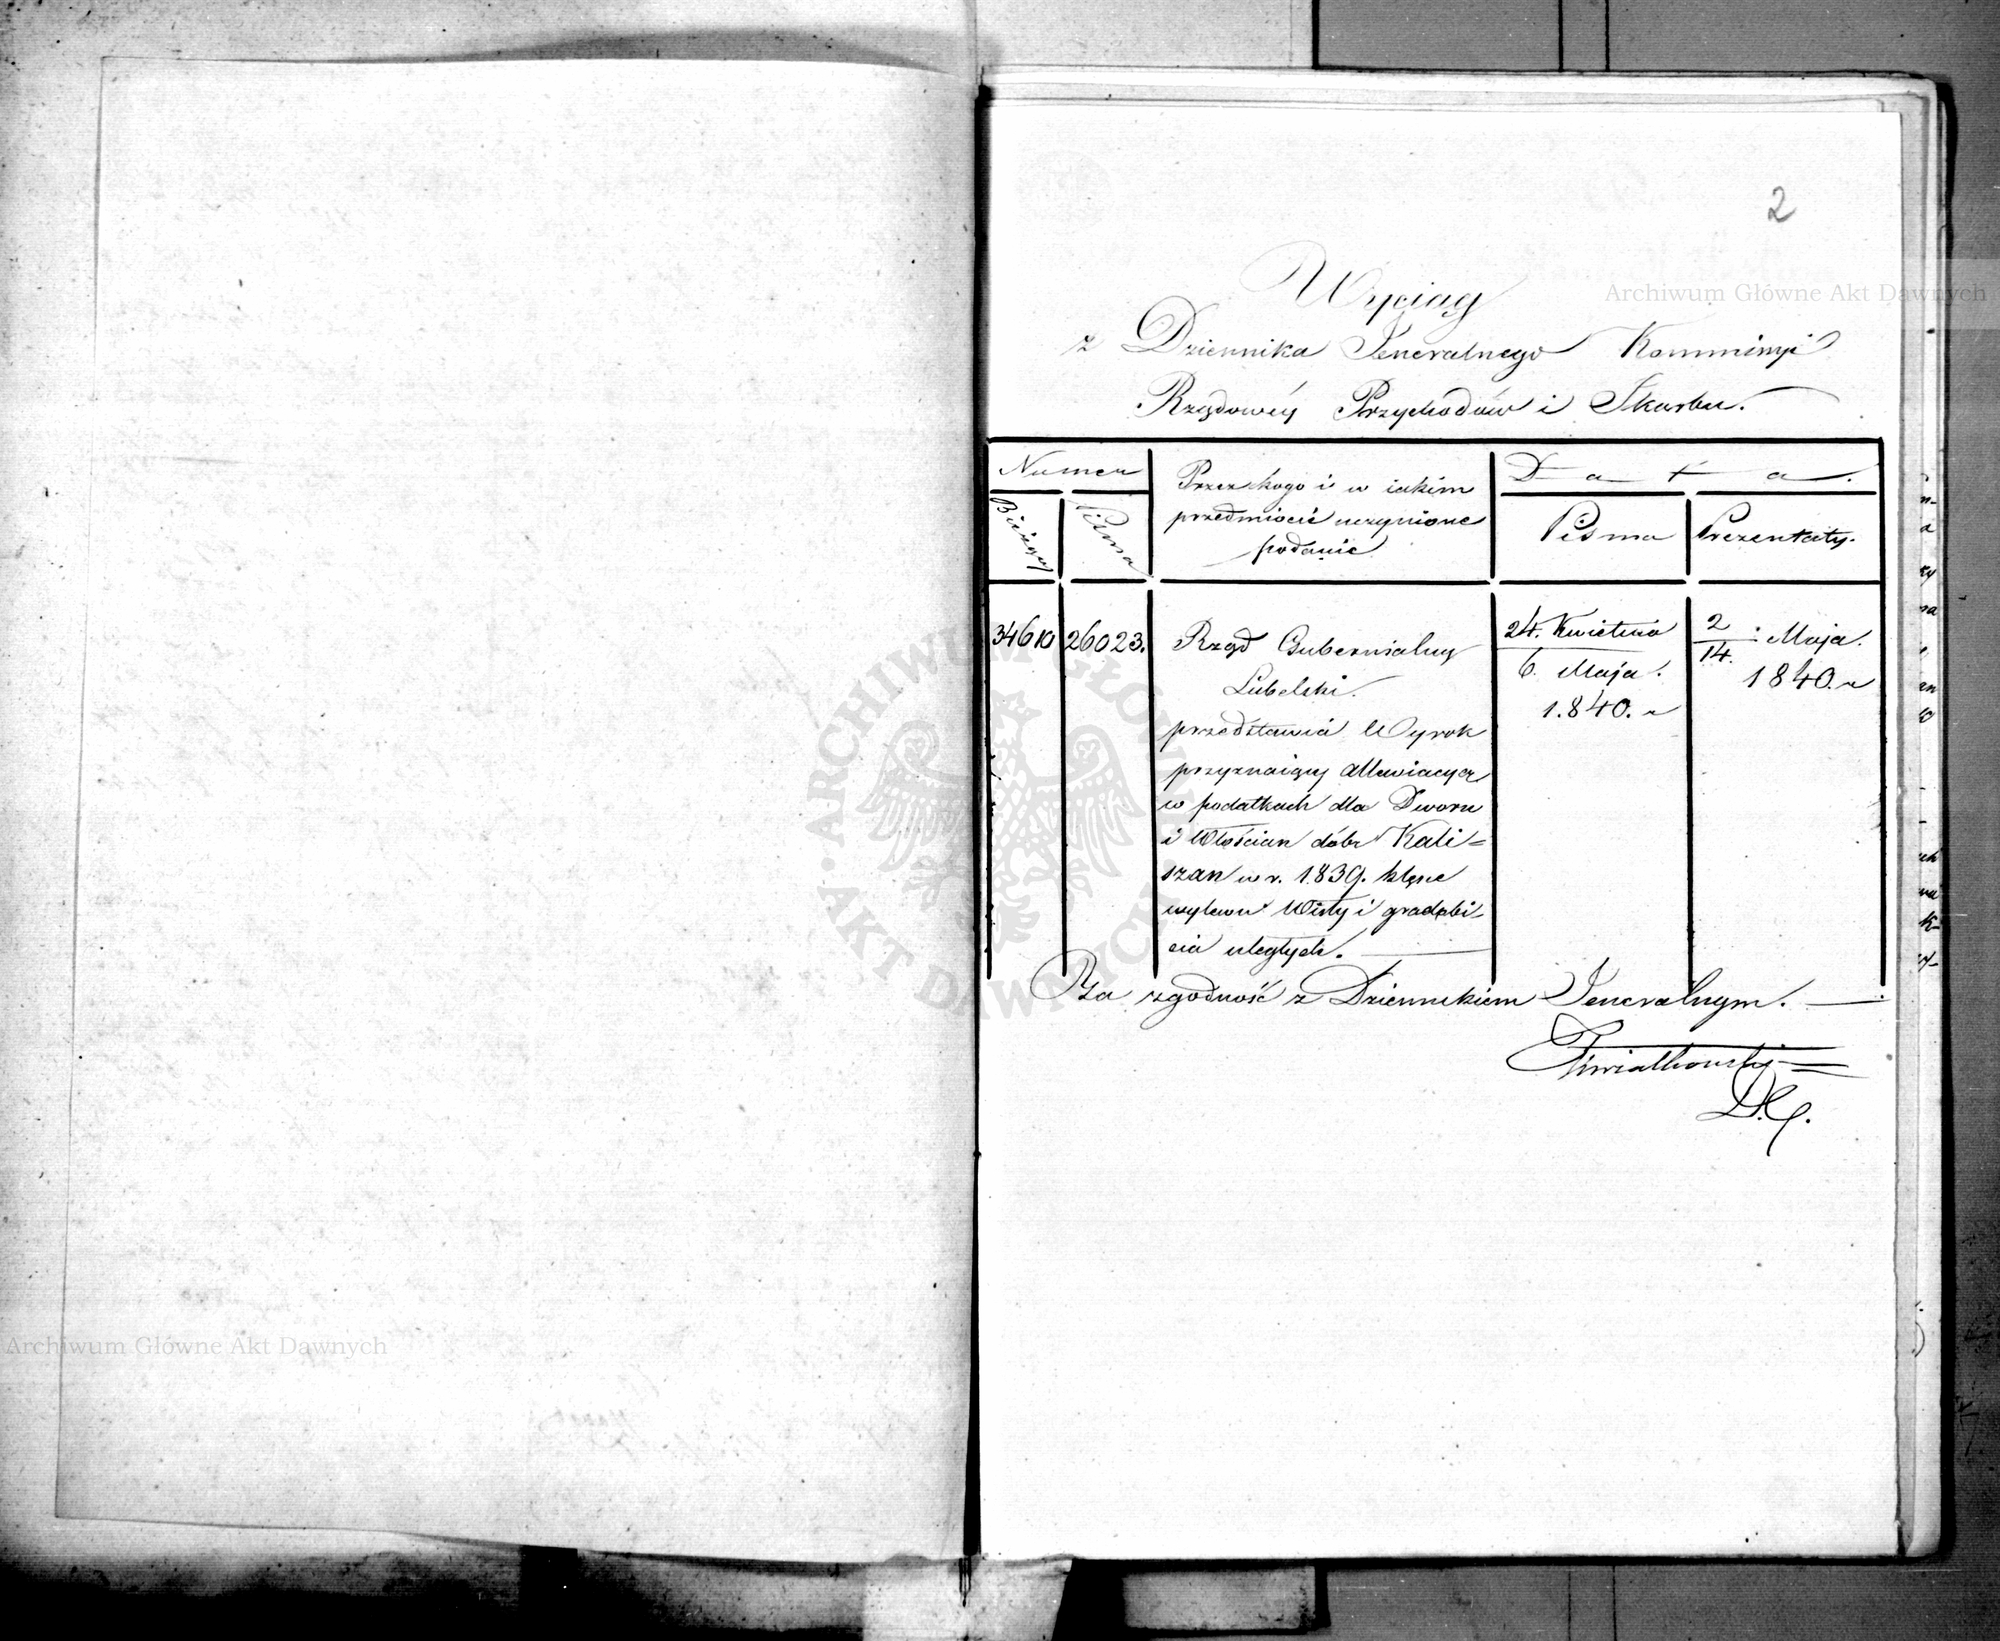 2
Wyciąg
z Dziennika Jeneralnego Kommissyi
Rządowéy Przychodów i Skarbu.
Numer
Bieżący
Pisma
Przez kogo i w iakim
przedmiocie uczynione
podanie
Data.
Pisma
Prezentaty.
34610
26023.
Rząd Gubernialny
Lubelski.
przedstawia Wyrok
przyznaiący allewiacyą
w podatkach dla Dworu
i Włościan dóbr Kali=
szan w r. 1839. klęsce
wylewu Wisły i gradobi-
cia uległych.
24. Kwietnia
6. Maja.
1.840. r
2
14. Maja.
1840. r
Za zgodność z Dziennikiem Jeneralnym.
Kwiatkowski
D.G.
Archiwum Główne Akt Dawnych
Archiwum Główne Akt Dawnych
ARCHIWUM GŁÓWNE AKT DAWNYCH